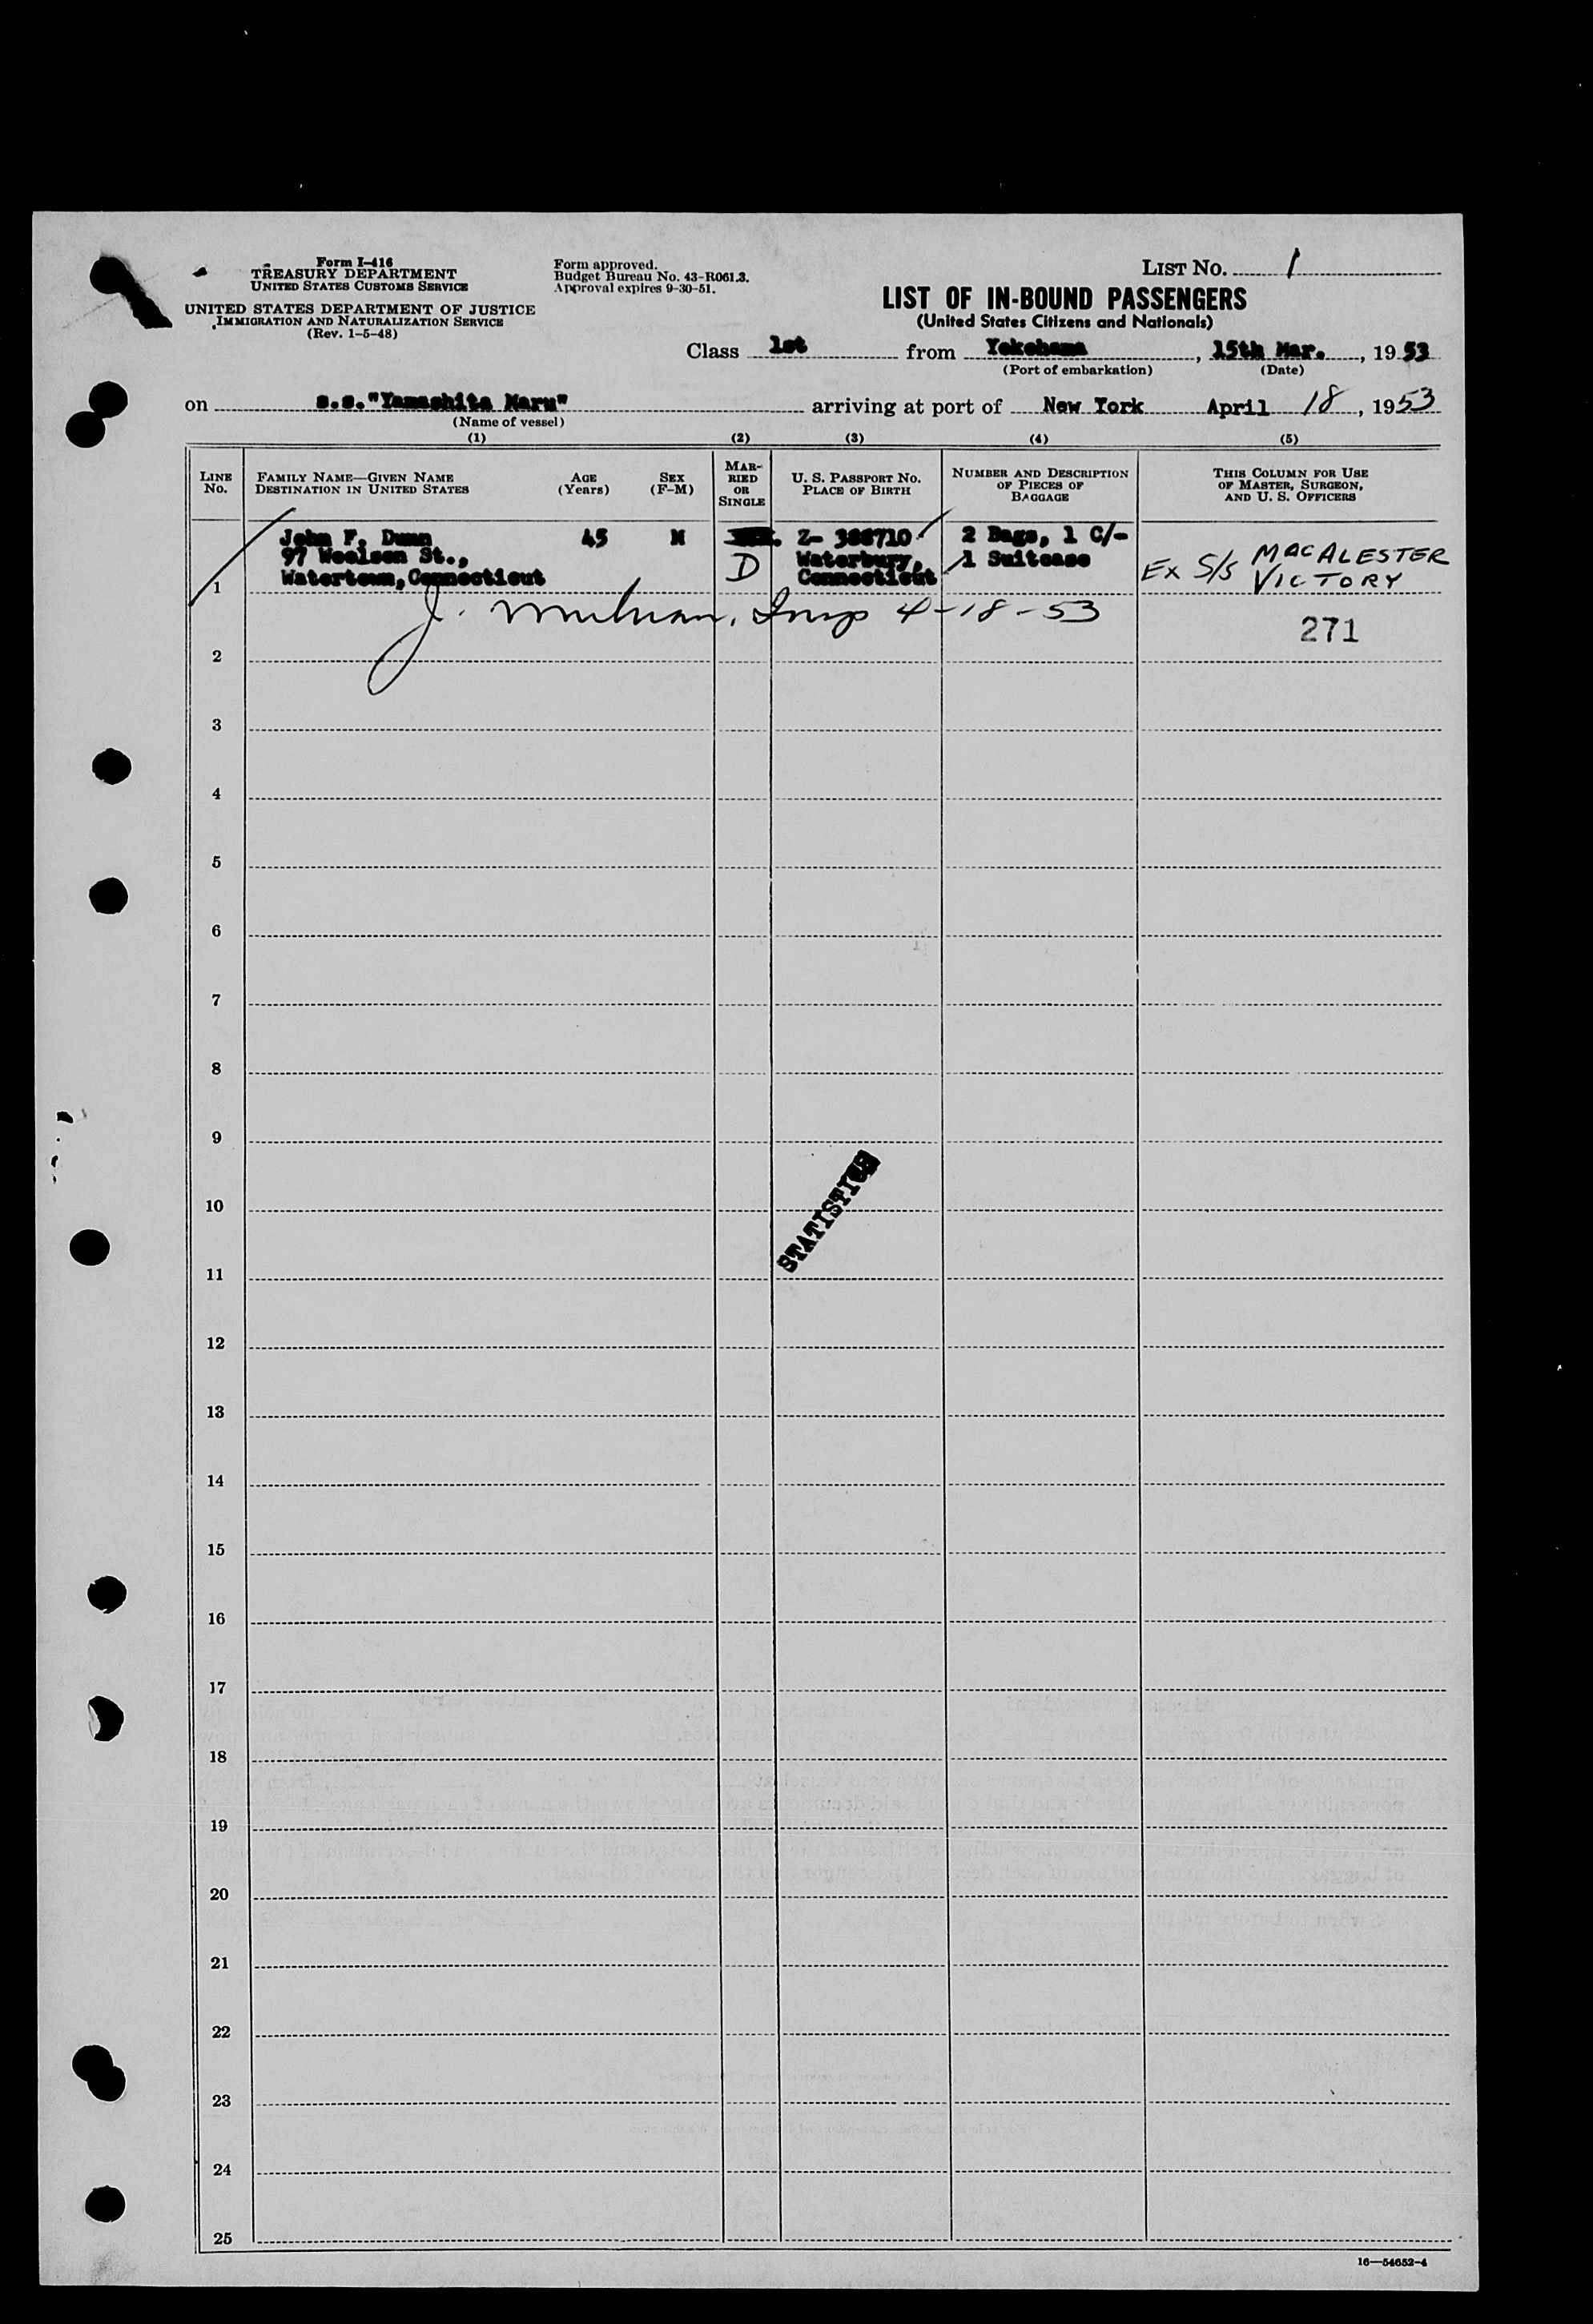 Form I-416
TREASURY DEPARTMENT
UNITED STATES CUSTOMS SERVICE
UNITED STATES DEPARTMENT OF JUSTICE
IMMIGRATION AND NATURALIZATION SERVICE
(Rev. 1-5-48)
Form approved.
Budget Bureau No. 43-R061.3.
Approval expires 9-30-51.
LIST NO. 1
LIST OF IN-BOUND PASSENGERS
(United States Citizens and Nationals)
Class 1st from Yokohama, 15th Mar., 1953
(Port of embarkation) (Date)
on s.s."Yamashita Maru" arriving at port of New York April 18, 1953
(Name of vessel)
(1) (2) (3) (4) (5)
LINE NO.
FAMILY NAME—GIVEN NAME
DESTINATION IN UNITED STATES
AGE (Years)
SEX (F-M)
MARRIED OR SINGLE
U. S. PASSPORT NO.
PLACE OF BIRTH
NUMBER AND DESCRIPTION
OF PIECES OF
BAGGAGE
THIS COLUMN FOR USE
OF MASTER, SURGEON,
AND U. S. OFFICERS
John F. Dunn 45 M Z- 388710 2 Bags, 1 C/-
97 Woolsen St., D Waterbury, 1 Suitcase
Watertown, Connecticut Connecticut
Ex S/S MACALESTER
VICTORY
1
J. Insp 4-18-53
271
2
3
4
5
6
7
8
9
STATISTICS
10
11
12
13
14
15
16
17
18
19
20
21
22
23
24
25
16—54652-4